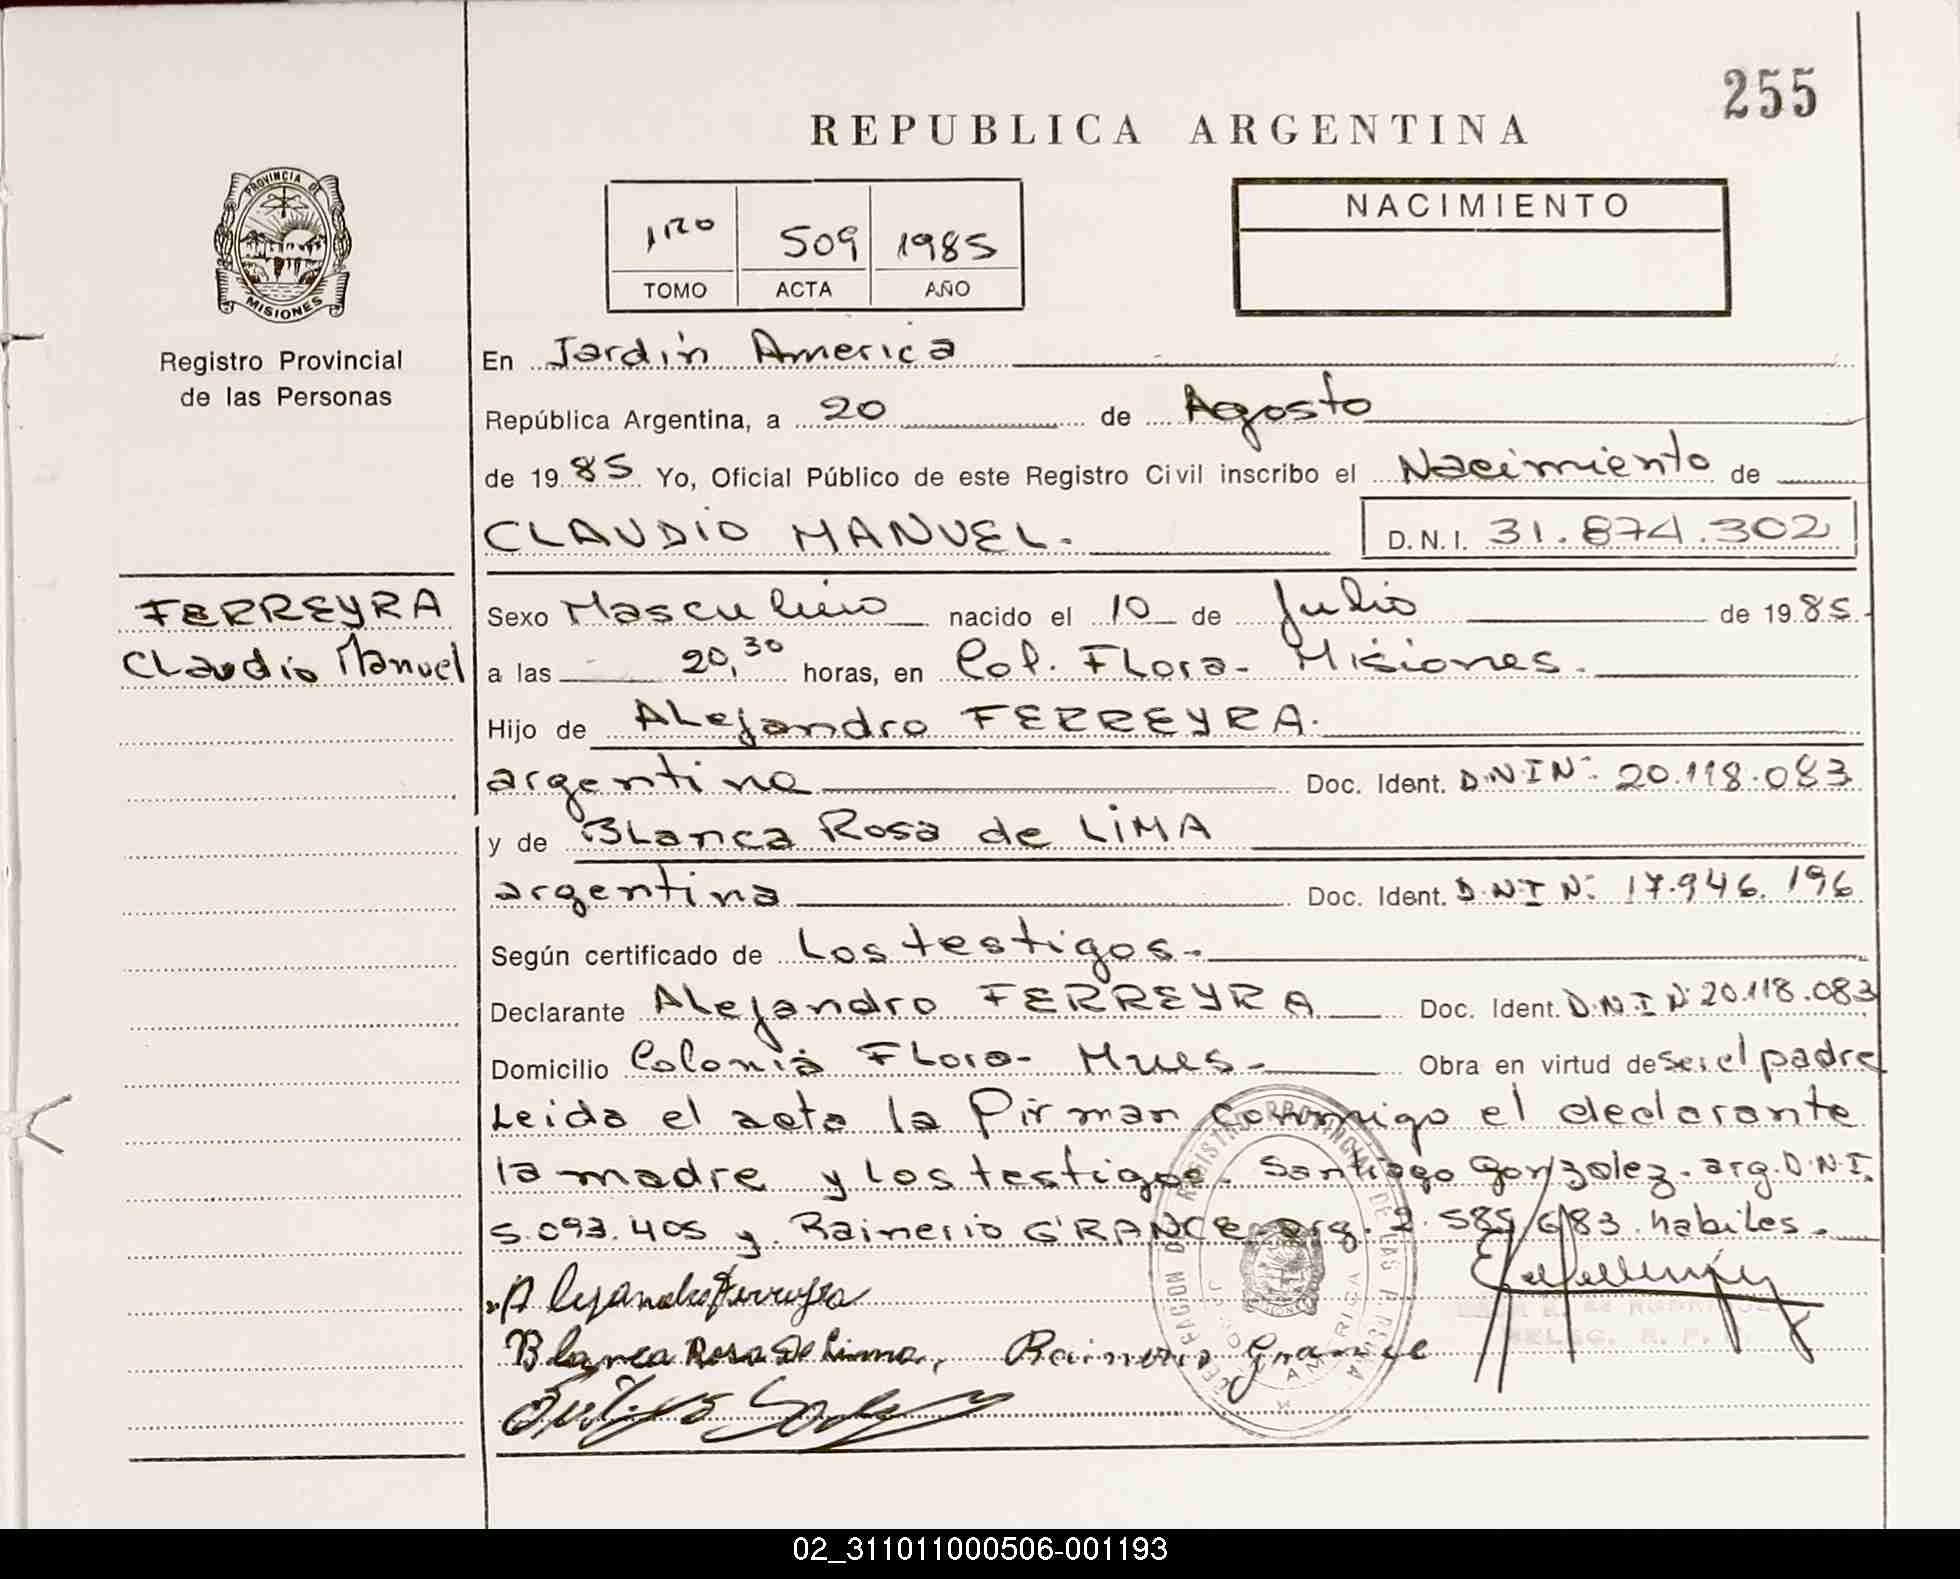 255
REPUBLICA ARGENTINA
PROVINCIA DE
MISIONES
Registro Provincial
de las Personas
1ro 509 1985
TOMO ACTA AÑO
NACIMIENTO
En Jardín America
República Argentina, a 20 de Agosto
de 1985 Yo, Oficial Público de este Registro Civil inscribo el Nacimiento de
CLAUDIO MANUEL.
D.N.I. 31.874.302
FERREYRA
Claudio Manuel
Sexo Masculino nacido el 10 de Julio de 1985.
a las 20,30 horas, en Col. Flora - Misiones.
Hijo de Alejandro FERREYRA.
argentino Doc. Ident. D.N.I Nº 20.118.083
y de Blanca Rosa de LIMA
argentina Doc. Ident. D.N.I N: 17.946.196
Según certificado de Los testigos.
Declarante Alejandro FERREYRA Doc. Ident. D.N.I Nº 20.118.083
Domicilio Colonia Flora - Mnes. Obra en virtud de ser el padre
Leida el acta la firman conmigo el declarante
la madre y los testigos. Santiago Gonzolez. arg. D.N.I.
5.093.405 y Rainerio GRANCE arg. 2.585.683. habiles.
Alejandro Ferreyra
Blanca Rosa de Lima, Rainerio Grance
02_311011000506-001193